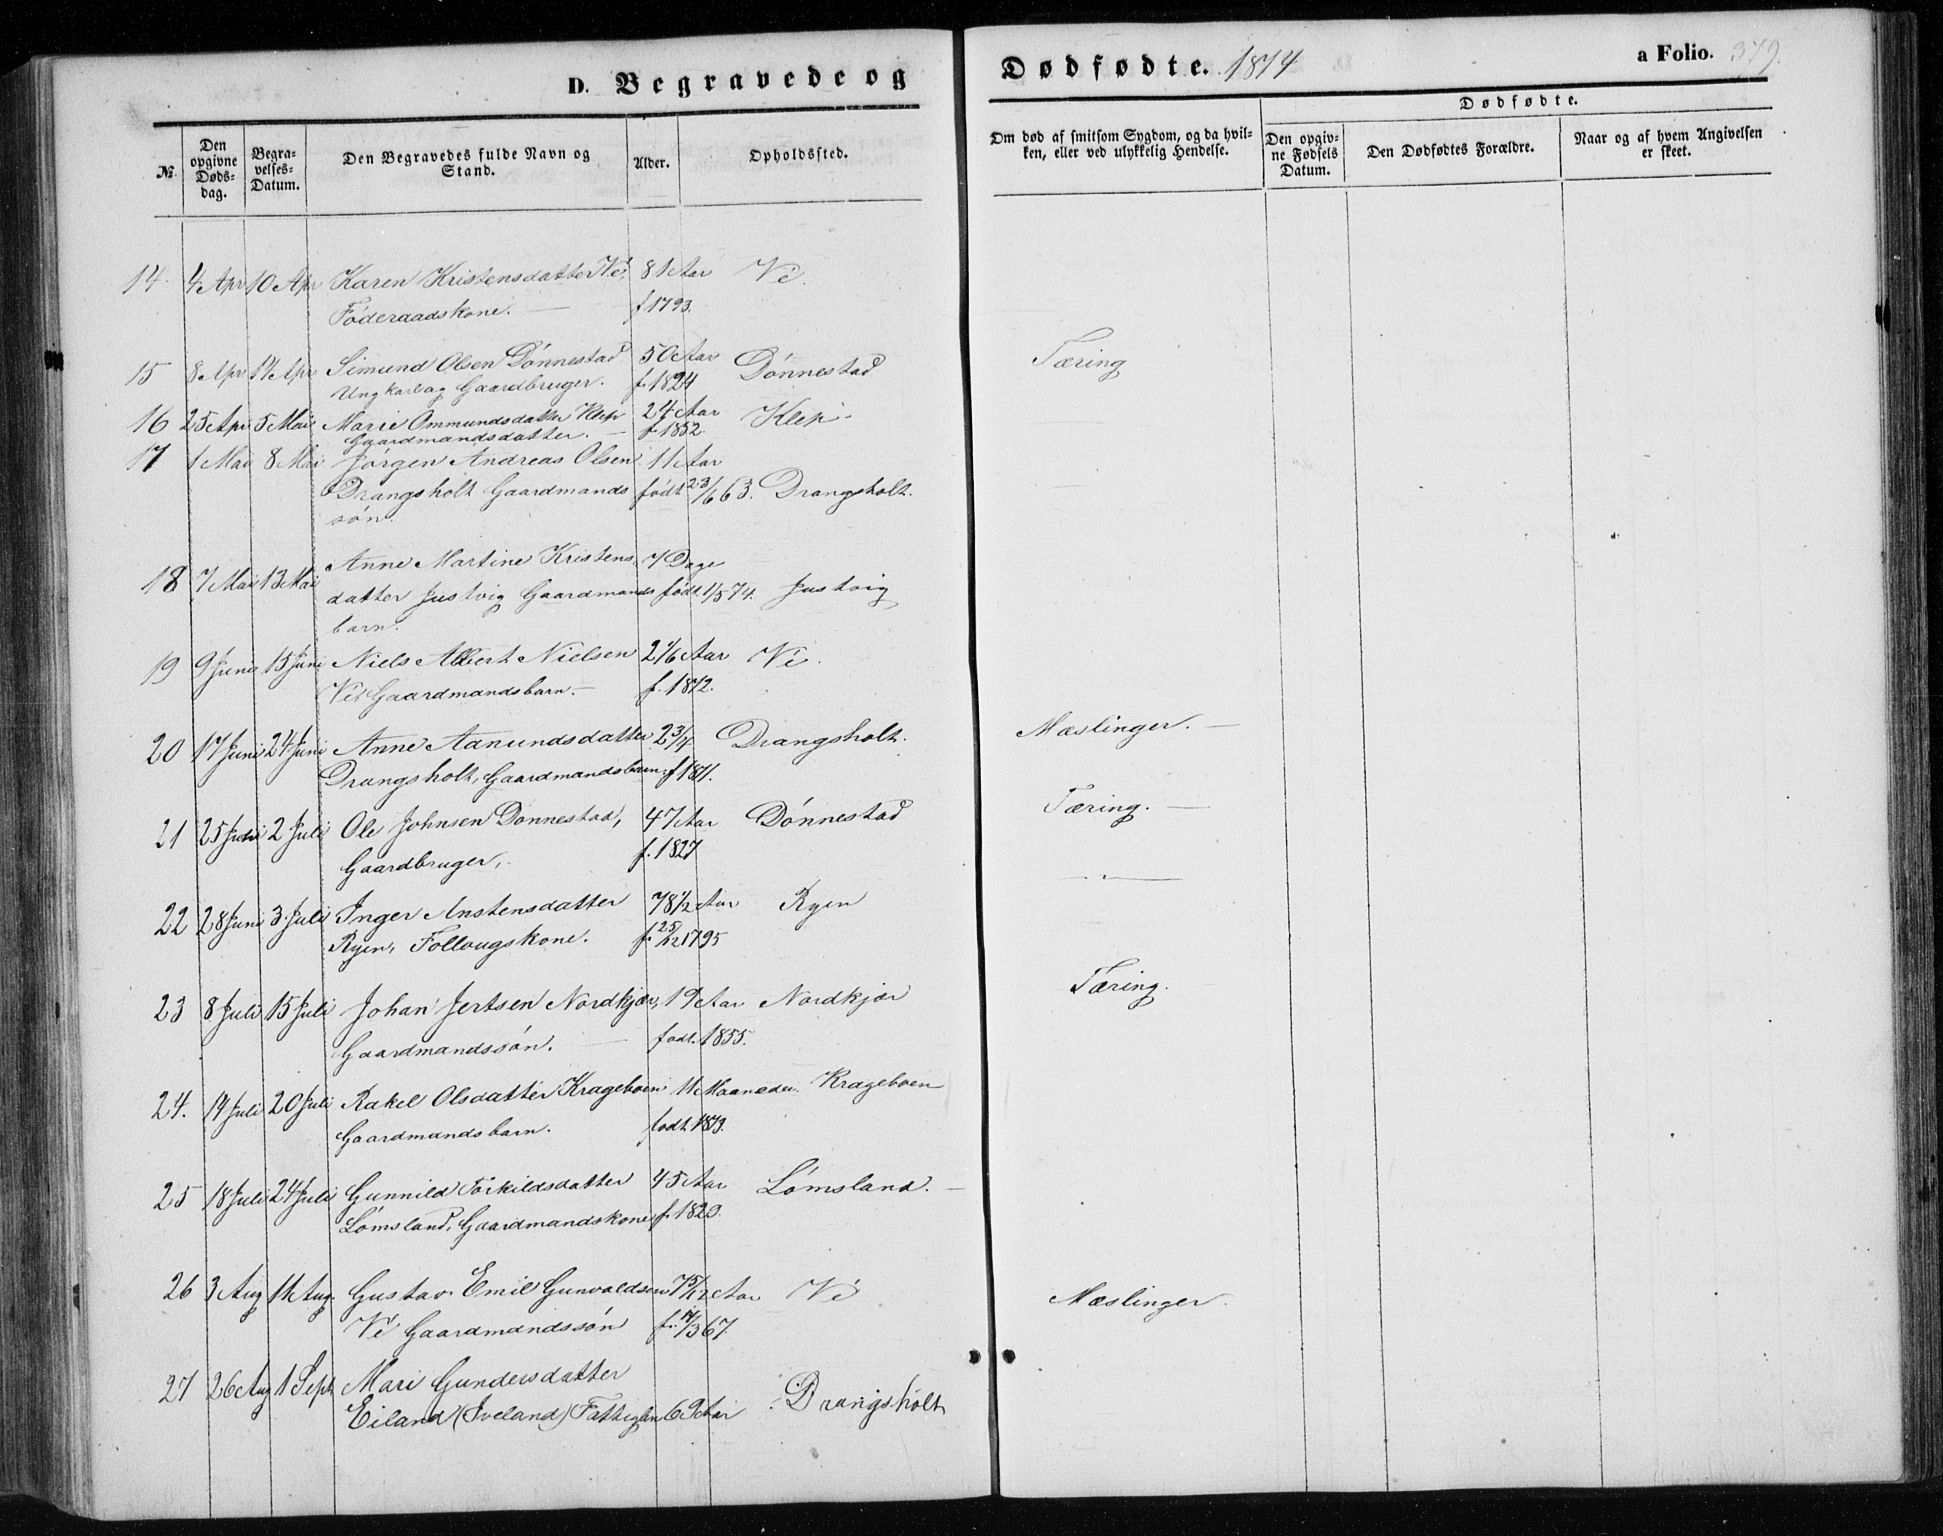 D. Begravede og Dødfødte. 1874 a Folio. 379.
Dødfødte.
№.
Den opgivne Døds-dag.
Begra-velses-Datum.
Den Begravedes fulde Navn og Stand.
Alder.
Opholdssted.
Om død af smitsom Sygdom, og da hvil-ken, eller ved ulykkelig Hendelse.
Den opgiv-ne Fødsels Datum.
Den Dødfødtes Forældre.
Naar og af hvem Angivelsen er skeet.
14. 4 Apr 10 Apr Karen Kristensdatter Ve, 81 Aar Ve.
Føderaadskone. — f 1793.
15 8 Apr 14 Apr Simund Olsen Dønnestad 50 Aar Dønnestad Tæring
Ungkarl og Gaardbruger. f. 1824
16 25 Apr 5 Mai Marie Ommundsdatter Klep 24 Aar Klep
Gaardmandsdatter. — f. 1852.
17 1 Mai 8 Mai Jørgen Andreas Olsen 11 Aar
Drangsholt Gaardmands født 23/6 63. Drangsholt.
søn.
Anne Martine Kristens 7 Dage
18 7 Mai 13 Mai datter Justvig Gaardmands født 1/5 74. Justvig
barn.
19 9 Juni 15 Juni Niels Albert Nielsen 2 1/6 Aar Ve.
Ve Gaardmandsbarn. — f. 1872.
20 17 Juni 24 Juni Anne Aanundsdatter 2 3/4 Drangsholt. Mæslinger. —
Drangsholt, Gaardmandsbarn, f 1871.
21 25 Juni 2 Juli Ole Johnsen Dønnestad, 47 Aar Dønnestad Tæring. —
Gaardbruger, f. 1827
22 28 Juni 3 Juli Inger Anstensdatter 78 1/2 Aar Ryen
Ryen, Follougskone. f. 25/12 1795
23 8 Juli 15 Juli Johan Jertsen Nordkjær, 19 Aar Nordkjær Tæring.
Gaardmandssøn. — født. 1855.
24. 14 Juli 20 Juli Rakel Olsdatter Krageboen 11 Maaneder. Krageboen
Gaardmandsbarn. født 1873.
25 18 Juli 24 Juli Gunnild Torkildsdatter 45 Aar Lømsland. —
Lømsland, Gaardmandskone f. 1829.
26 3 Aug 11 Aug. Gustav Emil Gunvaldsen 7 5/12 Aar Ve Mæslinger.
Ve Gaardmandssøn f. 14/3 67.
27 26 Aug 1 Sept Mari Gundersdatter
Eiland (Iveland) Fattiglem 69 Aar Drangsholt